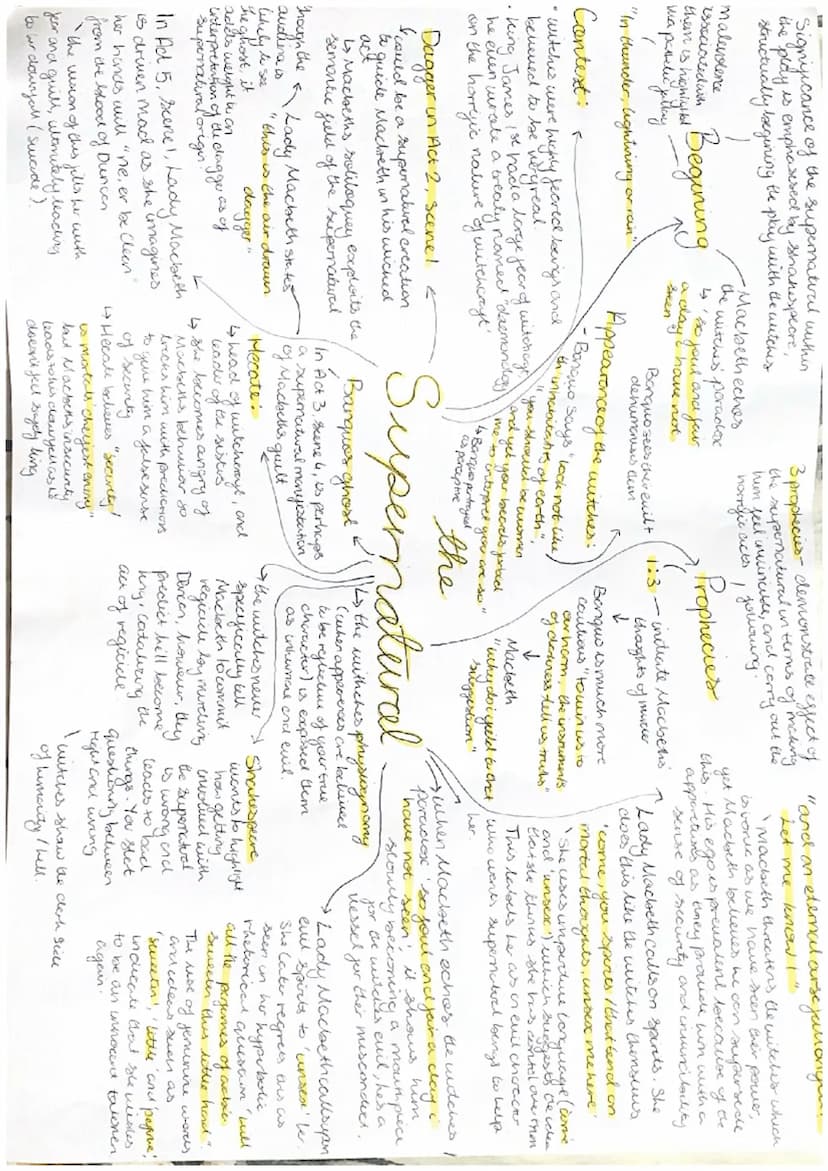 Significance of the supernatural within
the play is emphasised by Shakespeare,
structurally begining the play with the witches
malevolence
associated with
them is highlighted
via pathetic fallacy
Begining
"In thunder, lightning or rain"
Macbeth echoes
the witches paradox
↳ "so foul and fair
a day I have not
seen"
Context:
• witches were highly feared beings and
believed to be very real.
• King James 1st had a large fear of witchcraft
he even wrote a treaty named 'daemonology'
on the horrific nature of witchcraft
Appearance of the witches:
Banquo sees their evil &
- Banquo says "look not like
th'inhabitants of earth"
"you should be women
and yet your beards forbid
me to interpret you are so"
↳ Banquo portrayed
as perceptive
3 prophecies - demonstrate effect of
the supernatural in terms of making
him feel invincible, and carry out the
horrific acts following.
Prophecies
1:3 - indicate Macbeths'
thoughts of murder
Banquo is much more
cautious "to win us to
our harm, the instruments
of darkness tell us truths"
Macbeth
"why do i yield to that
suggestion"
"and an eternal curse fall on you
Let me know!"
Macbeth threatens the witches which
is ironic as we have seen their power,
yet Macbeth believes he can supersede
this. His ego is prevalent because of the
apparitions as they provide him with a
sense of security and invincibility
Lady Macbeth calls on spirits. She
does this like the witches themselves
'come, you spirits / that tend on
mortal thoughts, unsex me here'
She uses imperative language ('come'
and 'unsex') which suggests the idea
that she thinks she has control over them
This labels her as an evil character
who wants supernatural beings to help
her.
Dagger in Act 2, Scene 1
could be a supernatural creation
to guide Macbeth in his wicked
act
↳ Macbeths soliloquy exploits the
semantic field of the supernatural
Lady Macbeth states
"this is the air drawn
dagger"
though the
audience is
likely to see
the ghost, it
adds weight to an
interpretation of the dagger as of
supernatural origin.
In Act 5, scene 1, Lady Macbeth
is driven mad as she imagines
her hands will "ne'er be clean"
from the blood of Duncan
the vision of this fills her with
fear and guilt, ultimately leading
to her downfall (suicide)
Supernatural
the
Banquos ghost
In Act 3, scene 4, is perhaps
a supernatural manifestation
of Macbeths guilt
Hecate:
↳ head of witchcraft, and
leader of the sisters
↳ she becomes angry of
Macbeths behavior so
tricks him with predictions
to give him a false sense
of security
↳ Hecate believes "security/
is mortals chiefest enemy"
but Macbeths insecurity
leads to his downfall as he
doesn't feel safely king
↳ the witches physiognomy
(when appearances are believed
to be reflective of your true
character) is exposed them
as inhuman and evil.
the witches never
specifically tell
Macbeth to commit
regicide by murdering
Duncan, however, they
predict he'll become
king, catalysing the
act of regicide.
Shakespeare
wants to highlight
how getting
involved with
the supernatural
is wrong and
leads to bad
things. You start
questioning between
right and wrong
witches show the dark side
of humanity / hell.
when Macbeth echoes the witches
paradox 'so foul and fair a day i
have not seen', it shows him
slowly becoming a mouthpiece
for the witches evil, he's a
vessel for their misconduct.
Lady Macbeth calls upon
evil spirits to 'unsex' her.
She later regrets this as
seen in her hyperbolic
rhetorical question, "will
all the perfumes of arabia
sweeten this little hand".
The use of feminine words
and ideas such as
'sweeten', 'little' and 'perfume',
indicate that she wishes
to be an innocent women
again.